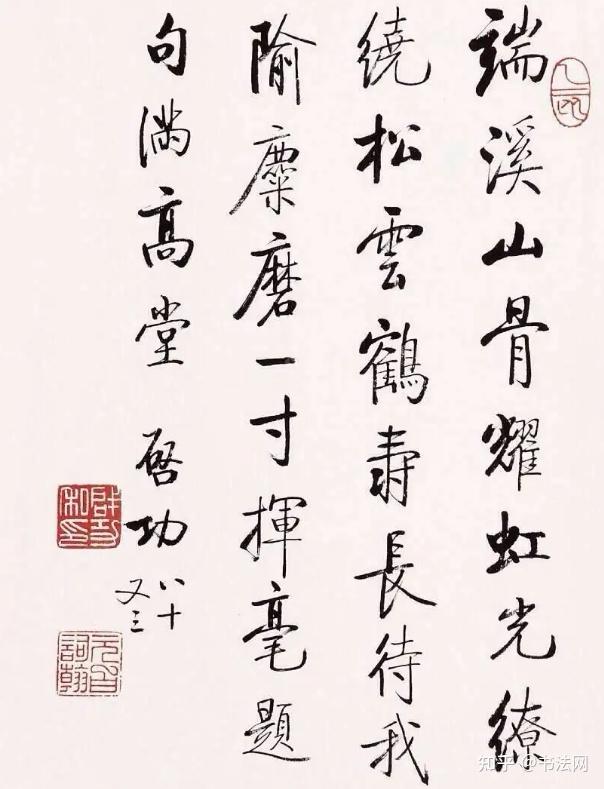 端溪山骨耀虹光缭
绕松雲鶴壽長待我
隃麋磨一寸揮毫題
句滿高堂 啓功
八十
又三
知乎 @书法网